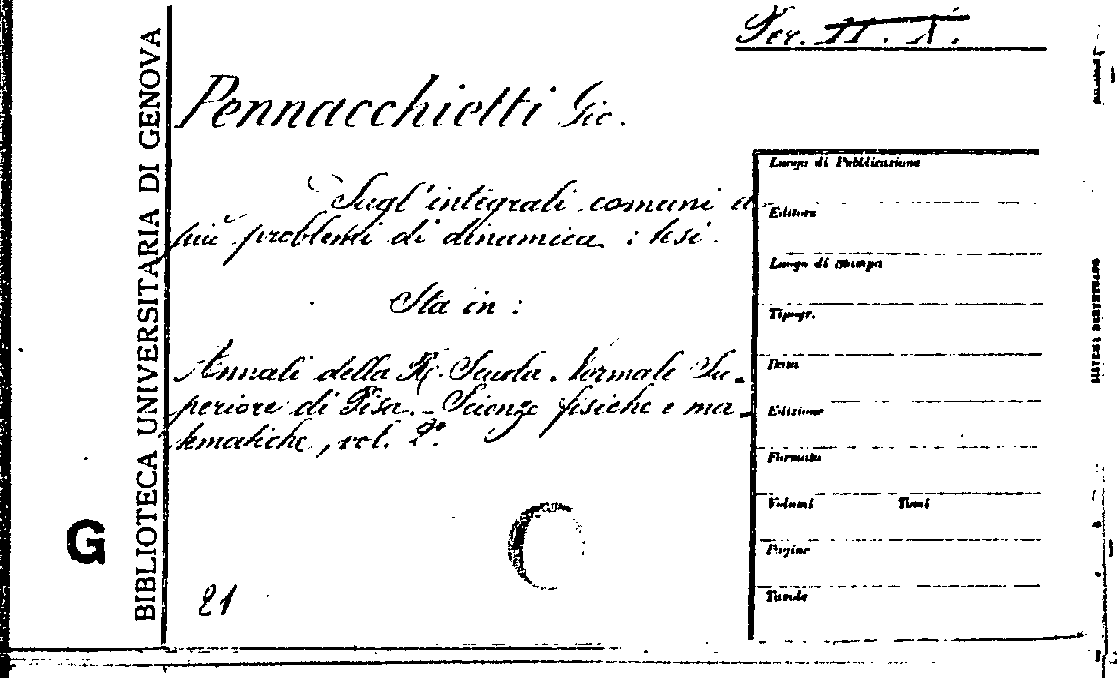 Per. II. X.
Pennacchietti Gio.
Sugl'integrali comuni a
più problemi di dinamica : tesi.
Sta in :
Annali della R. Scuola Normale Su-
periore di Pisa. - Scienze fisiche e ma-
tematiche, vol. 2°.
21
G
BIBLIOTECA UNIVERSITARIA DI GENOVA
Luogo di Pubblicazione
Editore
Luogo di stampa
Tipogr.
Data
Edizione
Formato
Volumi Tomi
Pagine
Tavole